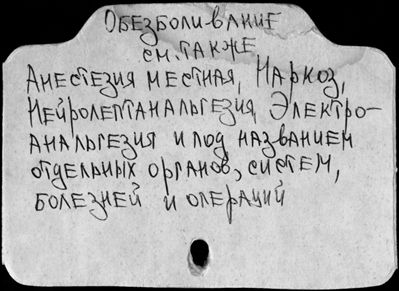 Обезболивание
см. также
Анестезия местная, Наркоз,
Нейролептанальгезия, Электро-
анальгезия и под названием
отдельных органов, систем,
болезней и операций